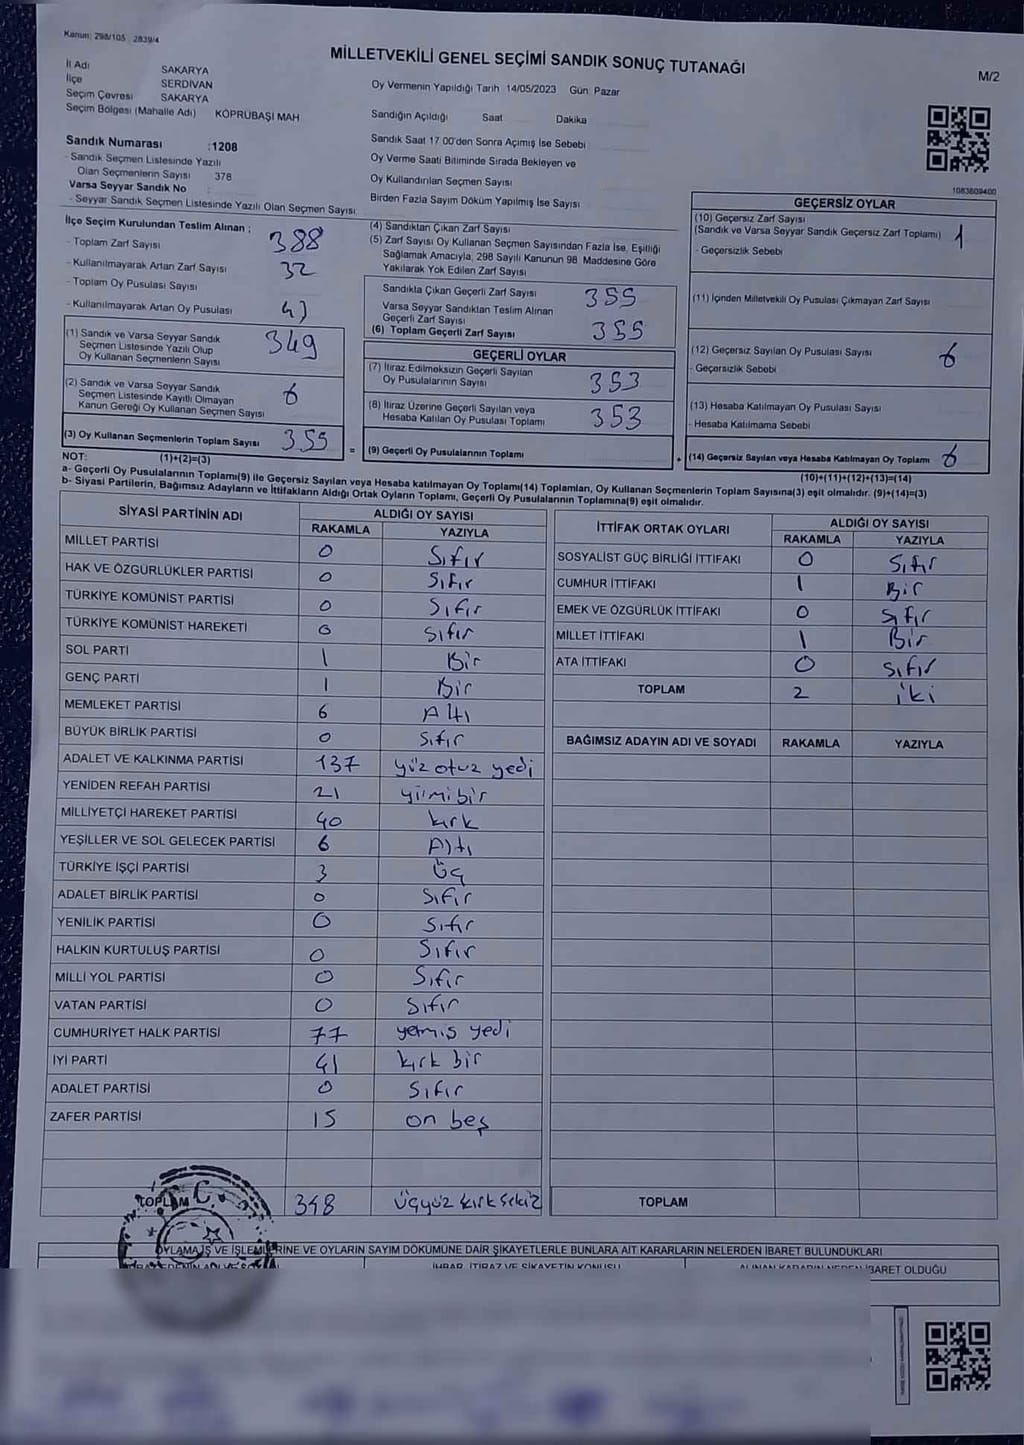 Kanun: 298/105 2839/4
MİLLETVEKİLİ GENEL SEÇİMİ SANDIK SONUÇ TUTANAĞI
M/2
İl Adı SAKARYA
İlçe SERDİVAN
Seçim Çevresi SAKARYA
Seçim Bölgesi (Mahalle Adı) KÖPRÜBAŞI MAH
Oy Vermenin Yapıldığı Tarih 14/05/2023 Gün Pazar
Sandığın Açıldığı Saat Dakika
Sandık Saat 17.00'den Sonra Açılmış İse Sebebi
Oy Verme Saati Bitiminde Sırada Bekleyen ve
Oy Kullandırılan Seçmen Sayısı
Birden Fazla Sayım Döküm Yapılmış İse Sayısı
Sandık Numarası :1208
- Sandık Seçmen Listesinde Yazılı
Olan Seçmenlerin Sayısı 378
Varsa Seyyar Sandık No
- Seyyar Sandık Seçmen Listesinde Yazılı Olan Seçmen Sayısı
1083609400
İlçe Seçim Kurulundan Teslim Alınan ;
- Toplam Zarf Sayısı 388
- Kullanılmayarak Artan Zarf Sayısı 32
- Toplam Oy Pusulası Sayısı
- Kullanılmayarak Artan Oy Pusulası
(1) Sandık ve Varsa Seyyar Sandık
Seçmen Listesinde Yazılı Olup
Oy Kullanan Seçmenlerin Sayısı 349
(2) Sandık ve Varsa Seyyar Sandık
Seçmen Listesinde Kayıtlı Olmayan
Kanun Gereği Oy Kullanan Seçmen Sayısı 6
(3) Oy Kullanan Seçmenlerin Toplam Sayısı 355 =
(4) Sandıktan Çıkan Zarf Sayısı
(5) Zarf Sayısı Oy Kullanan Seçmen Sayısından Fazla İse, Eşitliği
Sağlamak Amacıyla, 298 Sayılı Kanunun 98. Maddesine Göre
Yakılarak Yok Edilen Zarf Sayısı
Sandıkta Çıkan Geçerli Zarf Sayısı 355
Varsa Seyyar Sandıktan Teslim Alınan
Geçerli Zarf Sayısı
(6) Toplam Geçerli Zarf Sayısı 355
GEÇERLİ OYLAR
(7) İtiraz Edilmeksizin Geçerli Sayılan
Oy Pusulalarının Sayısı 353
(8) İtiraz Üzerine Geçerli Sayılan veya
Hesaba Katılan Oy Pusulası Toplamı 353
(9) Geçerli Oy Pusulalarının Toplamı +
GEÇERSİZ OYLAR
(10) Geçersiz Zarf Sayısı
(Sandık ve Varsa Seyyar Sandık Geçersiz Zarf Toplamı) 1
- Geçersizlik Sebebi
(11) İçinden Milletvekili Oy Pusulası Çıkmayan Zarf Sayısı
(12) Geçersiz Sayılan Oy Pusulası Sayısı 6
- Geçersizlik Sebebi
(13) Hesaba Katılmayan Oy Pusulası Sayısı
- Hesaba Katılmama Sebebi
(14) Geçersiz Sayılan veya Hesaba Katılmayan Oy Toplamı 6
NOT: (1)+(2)=(3) (10)+(11)+(12)+(13)=(14)
a- Geçerli Oy Pusulalarının Toplamı(9) ile Geçersiz Sayılan veya Hesaba katılmayan Oy Toplamı(14) Toplamları, Oy Kullanan Seçmenlerin Toplam Sayısına(3) eşit olmalıdır. (9)+(14)=(3)
b- Siyasi Partilerin, Bağımsız Adayların ve İttifakların Aldığı Ortak Oyların Toplamı, Geçerli Oy Pusulalarının Toplamına(9) eşit olmalıdır.
SİYASİ PARTİNİN ADI ALDIĞI OY SAYISI
RAKAMLA YAZIYLA
MİLLET PARTİSİ 0 Sıfır
HAK VE ÖZGÜRLÜKLER PARTİSİ 0 Sıfır
TÜRKİYE KOMÜNİST PARTİSİ 0 Sıfır
TÜRKİYE KOMÜNİST HAREKETİ 0 Sıfır
SOL PARTİ 1 Bir
GENÇ PARTİ 1 Bir
MEMLEKET PARTİSİ 6 Altı
BÜYÜK BİRLİK PARTİSİ 0 Sıfır
ADALET VE KALKINMA PARTİSİ 137 yüz otuz yedi
YENİDEN REFAH PARTİSİ 21 yirmibir
MİLLİYETÇİ HAREKET PARTİSİ 40 kırk
YEŞİLLER VE SOL GELECEK PARTİSİ 6 Altı
TÜRKİYE İŞÇİ PARTİSİ 3 Üç
ADALET BİRLİK PARTİSİ 0 Sıfır
YENİLİK PARTİSİ 0 Sıfır
HALKIN KURTULUŞ PARTİSİ 0 Sıfır
MİLLİ YOL PARTİSİ 0 Sıfır
VATAN PARTİSİ 0 Sıfır
CUMHURİYET HALK PARTİSİ 77 yetmiş yedi
İYİ PARTİ 41 kırk bir
ADALET PARTİSİ 0 Sıfır
ZAFER PARTİSİ 15 on beş
TOPLAM 348 Üçyüz kırk sekiz
İTTİFAK ORTAK OYLARI ALDIĞI OY SAYISI
RAKAMLA YAZIYLA
SOSYALİST GÜÇ BİRLİĞİ İTTİFAKI 0 Sıfır
CUMHUR İTTİFAKI 1 Bir
EMEK VE ÖZGÜRLÜK İTTİFAKI 0 Sıfır
MİLLET İTTİFAKI 1 Bir
ATA İTTİFAKI 0 Sıfır
TOPLAM 2 iki
BAĞIMSIZ ADAYIN ADI VE SOYADI RAKAMLA YAZIYLA
TOPLAM
OYLAMA İŞ VE İŞLEMLERİNE VE OYLARIN SAYIM DÖKÜMÜNE DAİR ŞİKAYETLERLE BUNLARA AİT KARARLARIN NELERDEN İBARET BULUNDUKLARI
İHBAR, İTİRAZ VE ŞİKAYETİN KONUSU
ALINAN KARARIN NEDEN İBARET OLDUĞU